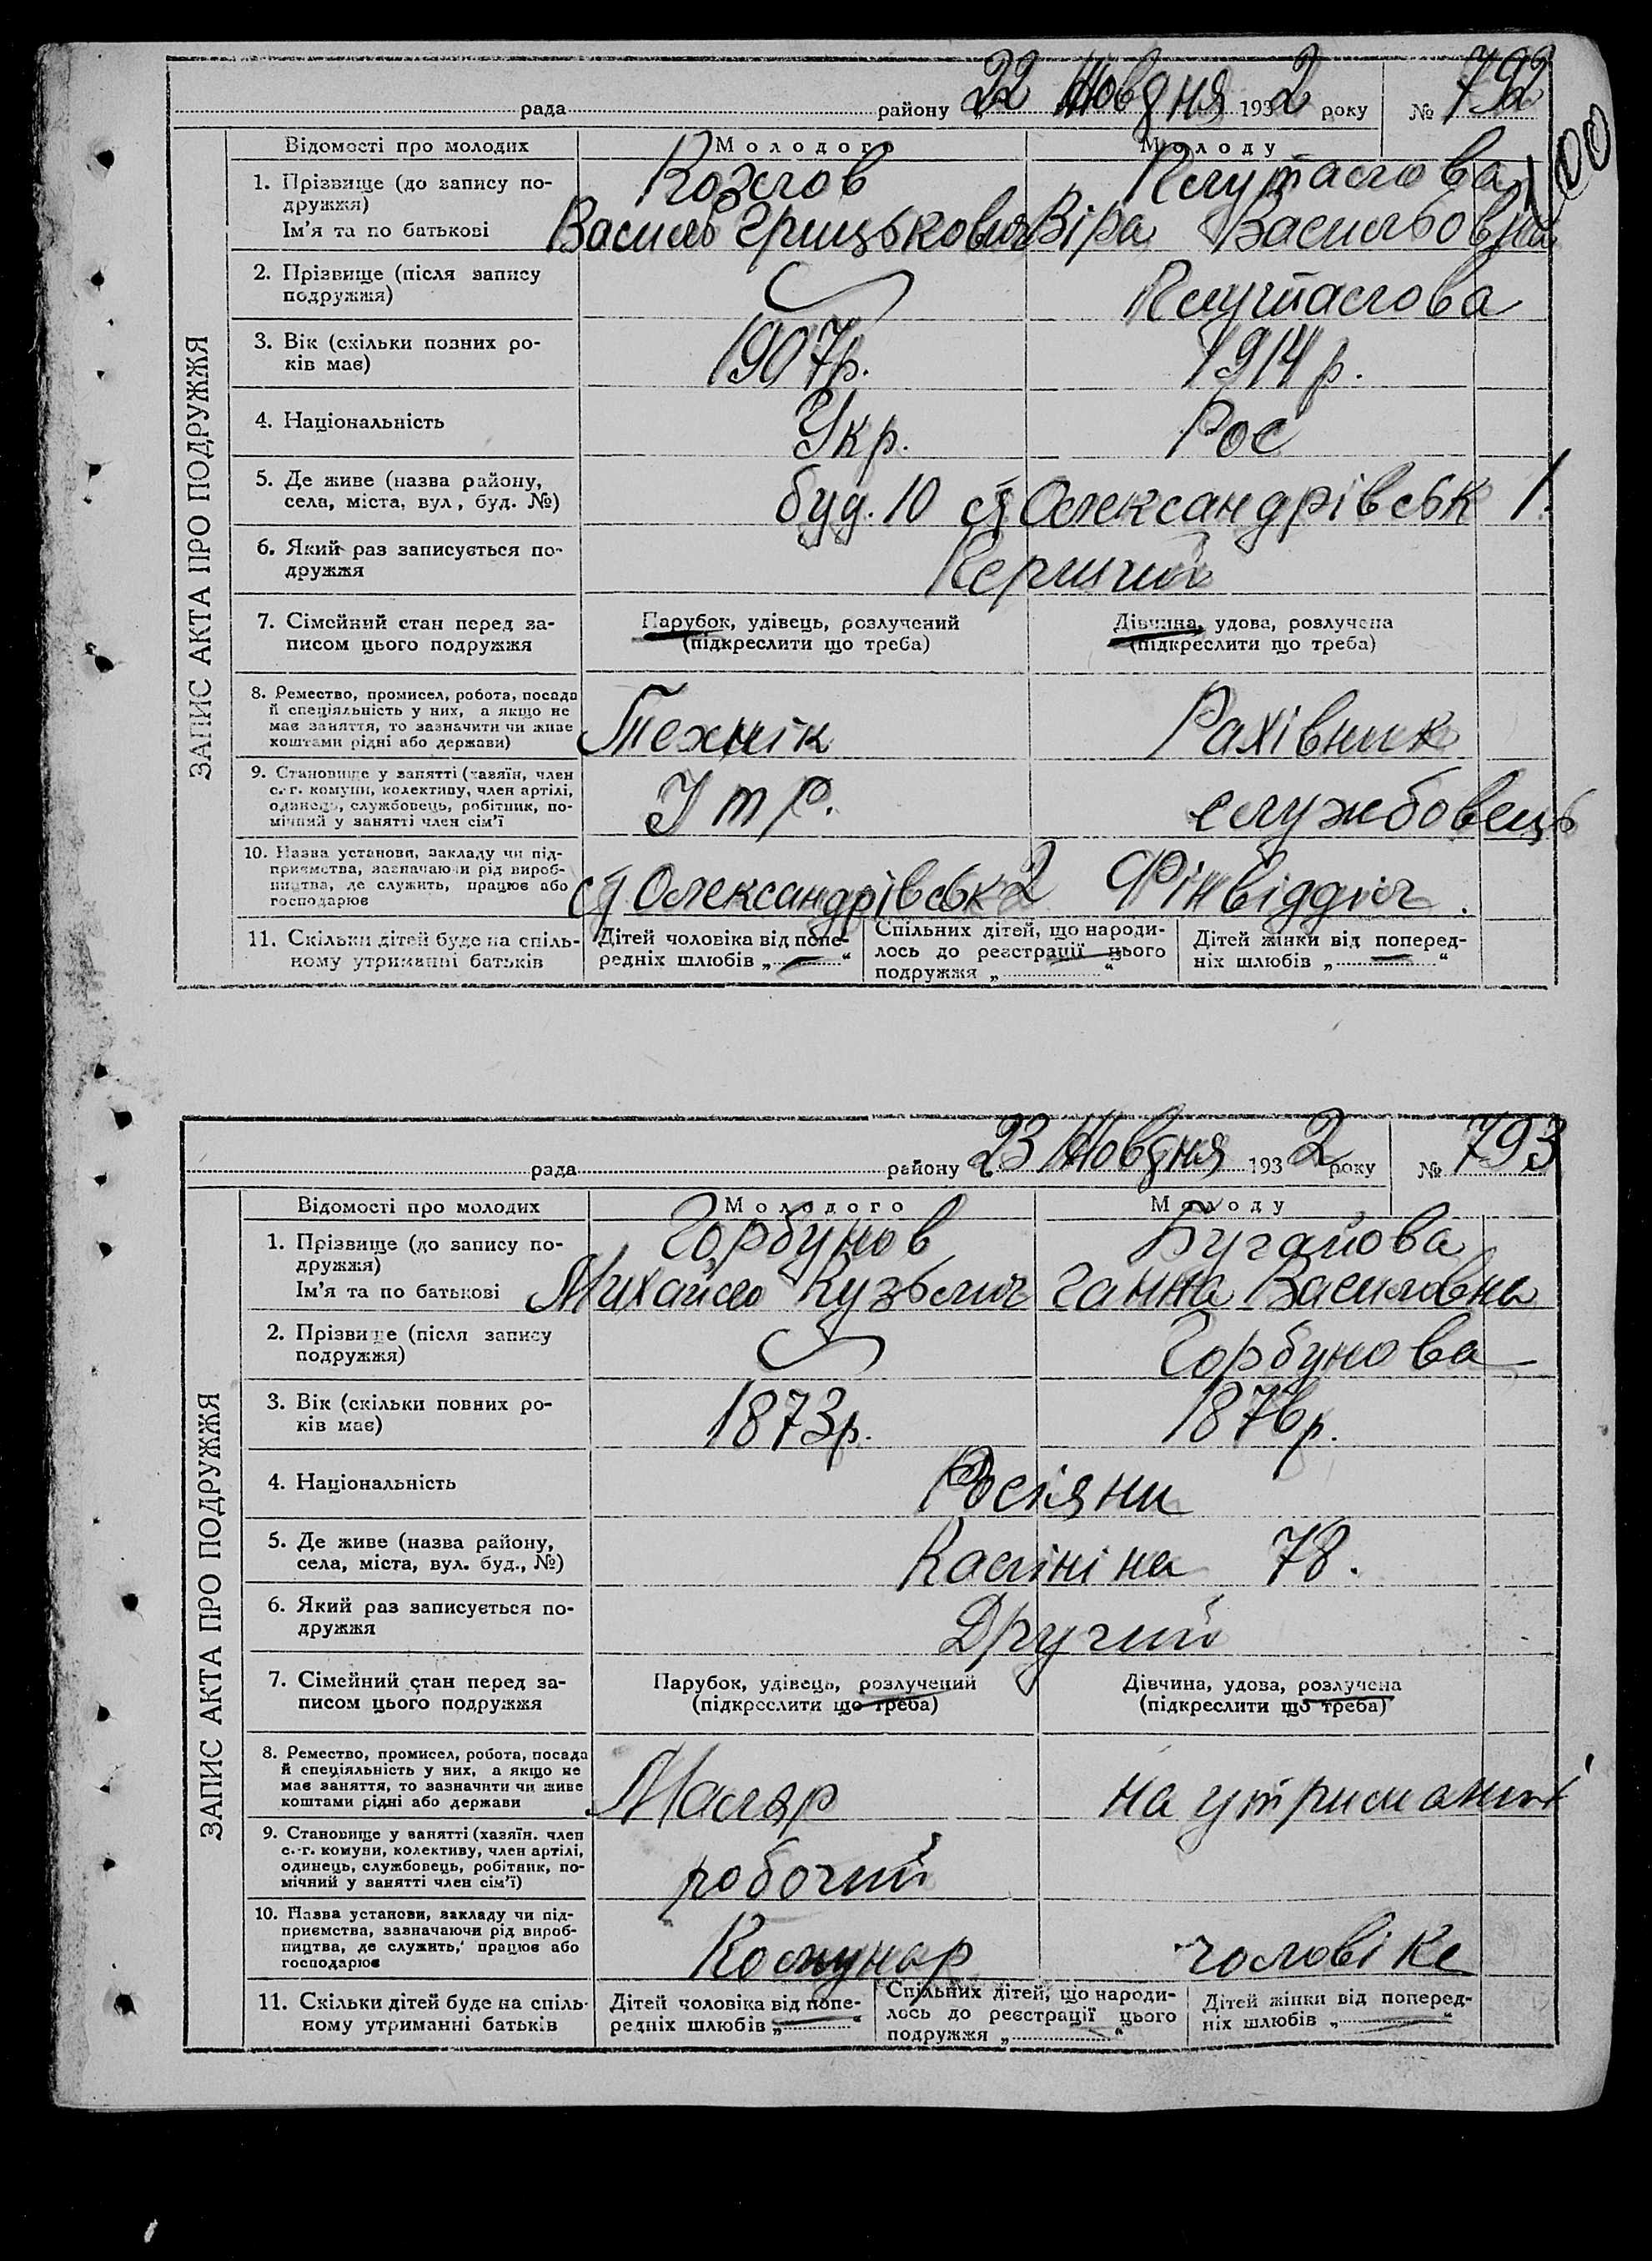 рада району 22 Жовтня 1932 року № 792
100
ЗАПИС АКТА ПРО ПОДРУЖЖЯ
Відомості про молодих Молодого Молоду
1. Прізвище (до запису по- Козлов
дружжя)
Ім'я та по батькові Василь Грицькович Віра Васильовна
2. Прізвище (після запису
подружжя)
3. Вік (скільки повних ро- 1907р. 1914 р.
ків має)
4. Національність Укр. Рос
5. Де живе (назва району,
села, міста, вул, буд. №) буд. 10 ст Олександрівськ 1.
6. Який раз записується по- Перший
дружжя
7. Сімейний стан перед за- Парубок, удівець, розлучений Дівчина, удова, розлучена
писом цього подружжя (підкреслити що треба) (підкреслити що треба)
8. Ремество, промисел, робота, посада
й спеціяльність у них, а якщо не
має заняття, то зазначити чи живе Технік Рахівник
коштами рідні або держави)
9. Становище у занятті (хазяїн, член
с.-г. комуни, колективу, член артілі,
одинець, службовець, робітник, по- ІтР. службовець
мічний у занятті член сім'ї
10. Назва установи, закладу чи під-
приємства, зазначаючи рід вироб-
ництва, де служить, працює або ст Олександрівськ 2 Фінвідділ.
господарює
11. Скільки дітей буде на спіль- Дітей чоловіка від попе- Спільних дітей, що народи- Дітей жінки від поперед-
ному утриманні батьків редніх шлюбів „ — “ лось до реєстрації цього ніх шлюбів „ — “
подружжя „ “
рада району 23 Жовтня 1932 року № 793
ЗАПИС АКТА ПРО ПОДРУЖЖЯ
Відомості про молодих Молодого Молоду
1. Прізвище (до запису по- Горбунов Бугайова
дружжя)
Ім'я та по батькові Михайло Кузьмич Ганна Василовна
2. Прізвище (після запису Горбунова
подружжя)
3. Вік (скільки повних ро- 1873р. 1876р.
ків має)
4. Національність Росіяни
5. Де живе (назва району,
села, міста, вул. буд., №) Калініна 78.
6. Який раз записується по- Другий
дружжя
7. Сімейний стан перед за- Парубок, удівець, розлучений Дівчина, удова, розлучена
писом цього подружжя (підкреслити що треба) (підкреслити що треба)
8. Ремество, промисел, робота, посада
й спеціяльність у них, а якщо не
має заняття, то зазначити чи живе Маляр на утриманні
коштами рідні або держави
9. Становище у занятті (хазяїн. член
с.-г. комуни, колективу, член артілі,
одинець, службовець, робітник, по- робочий
мічний у занятті член сім'ї)
10. Назва установи, закладу чи під-
приємства, зазначаючи рід вироб-
ництва, де служить, працює або Комунар чоловіка
господарює
11. Скільки дітей буде на спіль- Дітей чоловіка від попе- Спільних дітей, що народи- Дітей жінки від поперед-
ному утриманні батьків редніх шлюбів „ — “ лось до реєстрації цього ніх шлюбів „ — “
подружжя „ “